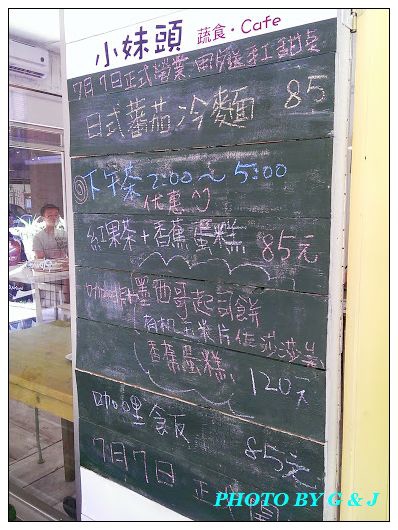 小妹頭 蔬食·Cafe
7月7日正式營業 甜點
日式蕃茄冷麵 85
下午茶 2:00~5:00
优惠
紅果茶+香蕉蛋糕 85元
咖啡 墨西哥起司餅
有机玉米片佐莎莎醬
香蕉蛋糕 120元
咖哩飯 85元
7月7日 正
PHOTO BY G & J